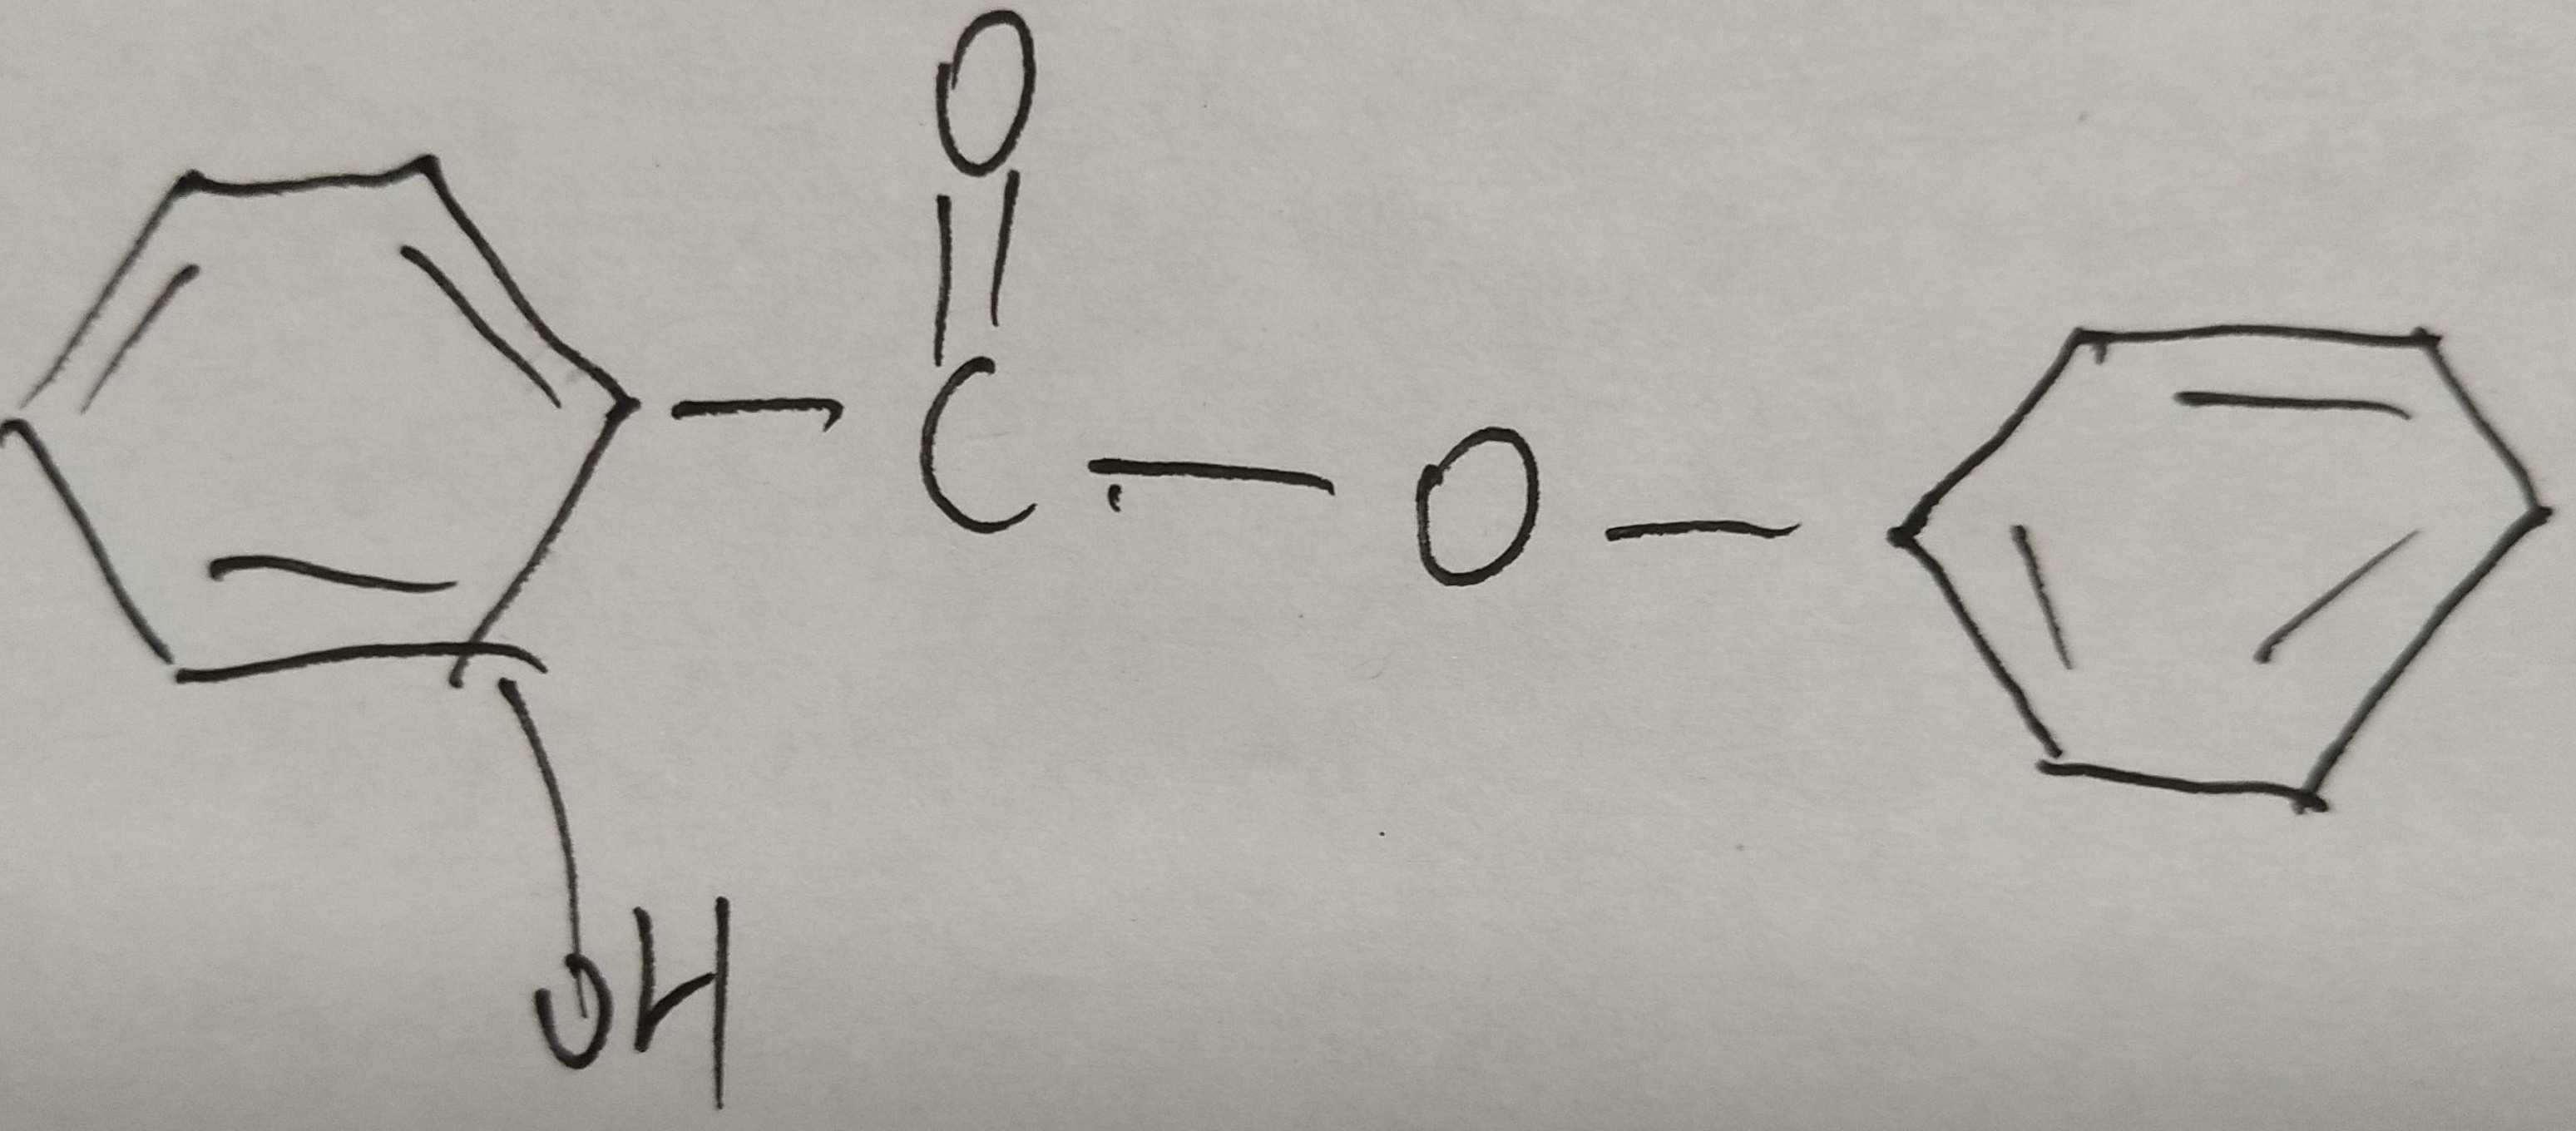 O
C
O
OH